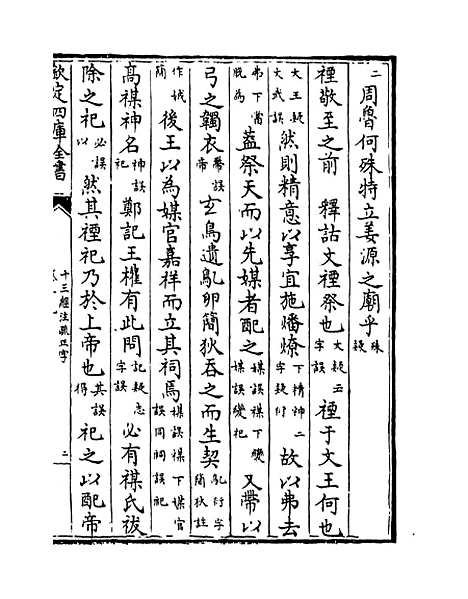 二周魯何殊特立姜源之廟乎殊疑
禋敬至之前　釋詁文禋祭也大疑五字誤　禋于文王何也
大王疑大武誤然則精意以享宜施燔燎下精神二字疑衍故以弗去
弗下當脱為蓋祭天而以先媒者配之媒誤禖下變媒誤變祀又帶以
弓之韣衣帶誤帝玄鳥遺鳦卵簡狄吞之而生契鳦衍字簡狄註
作娀簡後王以為媒官嘉祥而立其祠焉媒誤禖下媒官誤同祠誤祀
高禖神名神誤祀鄭記王權有此問記疑志字誤必有禖氏祓
除之祀必誤以然其禋祀乃於上帝也其誤得祀之以配帝
欽定四庫全書
十三經注疏正字
二